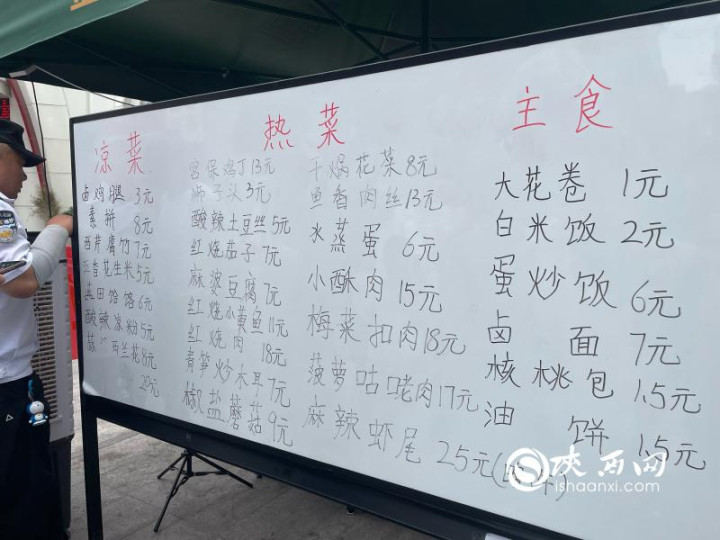 凉菜
卤鸡腿 3元
素拼 8元
西芹腐竹 7元
五香花生米 5元
6元
酸辣凉粉 5元
西兰花 8元
20元
热菜
宫保鸡丁 13元
狮子头 3元
酸辣土豆丝 5元
红烧茄子 7元
麻婆豆腐 7元
红烧小黄鱼 11元
红烧肉 18元
青笋炒木耳 7元
椒盐蘑菇 9元
干锅花菜 8元
鱼香肉丝 13元
水蒸蛋 6元
小酥肉 15元
梅菜扣肉 18元
菠萝咕咾肉 17元
麻辣虾尾 25元
主食
大花卷 1元
白米饭 2元
蛋炒饭 6元
卤面 7元
核桃包 1.5元
油饼 1.5元
陕西网
ishaanxi.com